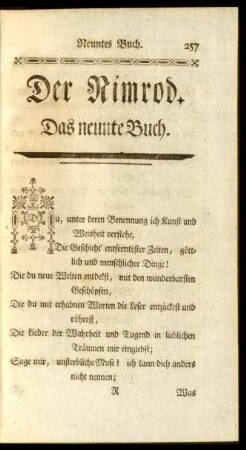 Neuntes Buch. 257
Der Nimrod.
Das neunte Buch.
Du, unter deren Benennung ich Kunst und
Weisheit verstehe,
Die Geschicht' entferntester Zeiten, gött-
lich und menschlicher Dinge!
Die du neue Welten entdekst, mit den wunderbarsten
Geschöpfen,
Die du mit erhabnen Worten die Leser entzückest und
rührest,
Die Lieder der Wahrheit und Tugend in lieblichen
Träumen mir eingiebst;
Sage mir, unsterbliche Muse! ich kann dich anders
nicht nennen;
R Was